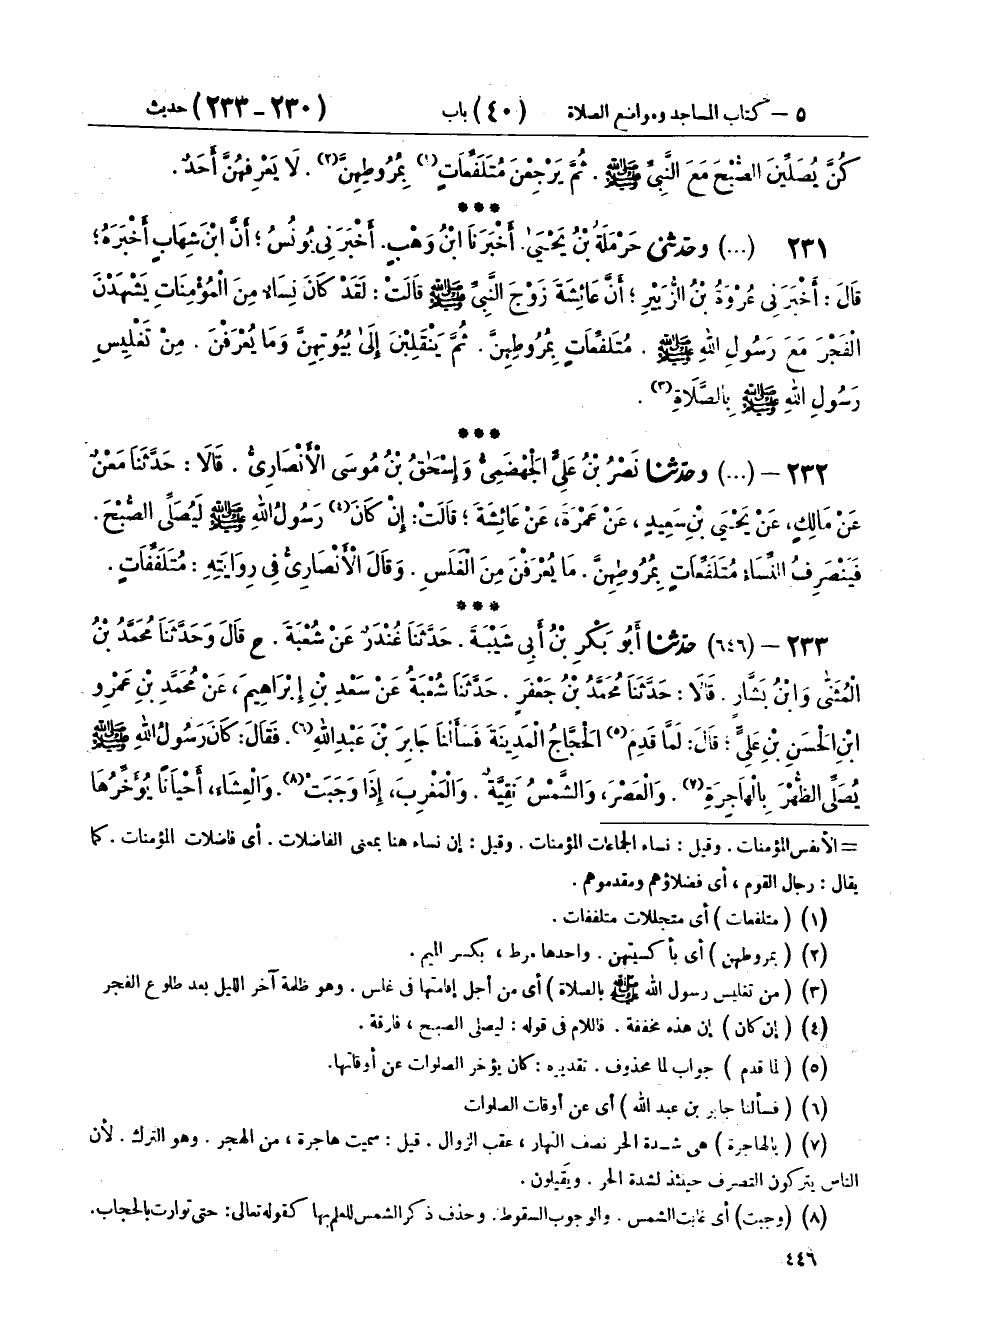 ٥ – كتاب المساجد ومواضع الصلاة (٤٠) باب (٢٣٠ – ٢٣٣) حديث
كُنَّ يُصَلِّينَ الصُّبْحَ مَعَ النَّبِىِّ ﷺ . ثُمَّ يَرْجِعْنَ مُتَلَفِّعَاتٍ(١) بِمُرُوطِهِنَّ(٢) . لَا يَعْرِفُهُنَّ أَحَدٌ .
***
٢٣١ (...) وحدثنى حَرْمَلَةُ بْنُ يَحْيَىٰ . أَخْبَرَنَا ابْنُ وَهْبٍ . أَخْبَرَنِى يُونُسُ ؛ أَنَّ ابْنَ شِهَابٍ أَخْبَرَهُ ؛
قَالَ : أَخْبَرَنِى عُرْوَةُ بْنُ الزُّبَيْرِ ؛ أَنَّ عَائِشَةَ زَوْجَ النَّبِىِّ ﷺ قَالَتْ : لَقَدْ كَانَ نِسَاءٌ مِنَ الْمُؤْمِنَاتِ يَشْهَدْنَ
الْفَجْرَ مَعَ رَسُولِ اللهِ ﷺ . مُتَلَفِّعَاتٍ بِمُرُوطِهِنَّ . ثُمَّ يَنْقَلِبْنَ إِلَىٰ بُيُوتِهِنَّ وَمَا يُعْرَفْنَ . مِنْ تَغْلِيسِ
رَسُولِ اللهِ ﷺ بِالصَّلَاةِ(٣) .
***
٢٣٢ – (...) وحدثنا نَصْرُ بْنُ عَلِىٍّ الْجَهْضَمِىُّ وَإِسْحَٰقُ بْنُ مُوسَى الْأَنْصَارِىُّ . قَالَا : حَدَّثَنَا مَعْنٌ
عَنْ مَالِكٍ، عَنْ يَحْيَىٰ بْنِ سَعِيدٍ ، عَنْ عَمْرَةَ، عَنْ عَائِشَةَ ؛ قَالَتْ: إِنْ كَانَ(٤) رَسُولُ اللهِ ﷺ لَيُصَلِّى الصُّبْحَ .
فَيَنْصَرِفُ النِّسَاءُ مُتَلَفِّعَاتٍ بِمُرُوطِهِنَّ . مَا يُعْرَفْنَ مِنَ الْغَلَسِ . وَقَالَ الْأَنْصَارِىُّ فِى رِوَايَتِهِ : مُتَلَفِّفَاتٍ .
***
٢٣٣ – (٦٤٦) حدثنا أَبُو بَكْرِ بْنُ أَبِى شَيْبَةَ . حَدَّثَنَا غُنْدَرٌ عَنْ شُعْبَةَ . ع قَالَ وَحَدَّثَنَا مُحَمَّدُ بْنُ
الْمُثَنَّىٰ وَابْنُ بَشَّارٍ . قَالَا : حَدَّثَنَا مُحَمَّدُ بْنُ جَعْفَرٍ . حَدَّثَنَا شُعْبَةُ عَنْ سَعْدِ بْنِ إِبْرَاهِيمَ ، عَنْ مُحَمَّدِ بْنِ عَمْرِو
ابْنِ الْحَسَنِ بْنِ عَلِىٍّ ؛ قَالَ: لَمَّا قَدِمَ(٥) الْحَجَّاجُ الْمَدِينَةَ فَسَأَلْنَا جَابِرَ بْنَ عَبْدِ اللهِ(٦). فَقَالَ: كَانَ رَسُولُ اللهِ ﷺ
يُصَلِّى الظُّهْرَ بِالْهَاجِرَةِ(٧) . وَالْعَصْرَ، وَالشَّمْسُ نَقِيَّةٌ . وَالْمَغْرِبَ، إِذَا وَجَبَتْ(٨). وَالْعِشَاءَ، أَحْيَانًا يُؤَخِّرُهَا
= الأنفس المؤمنات . وقيل : نساء الجماعات المؤمنات . وقيل : إن نساء هنا بمعنى الفاضلات . أى فاضلات المؤمنات . كما
يقال : رجال القوم ، أى فضلاؤهم ومقدموهم .
(١) ( متلفعات ) أى متجللات متلففات .
(٢) ( بمروطهن ) أى بأكسيتهن . واحدها مرط ، بكسر الميم .
(٣) ( من تغليس رسول الله ﷺ بالصلاة ) أى من أجل إقامتها فى غلس . وهو ظلمة آخر الليل بعد طلوع الفجر
(٤) ( إن كان ) إن هذه مخففة . فاللام فى قوله : ليصلى الصبح ، فارقة .
(٥) ( لما قدم ) جواب لما محذوف . تقديره : كان يؤخر الصلوات عن أوقاتها.
(٦) ( فسألنا جابر بن عبد الله ) أى عن أوقات الصلوات
(٧) ( بالهاجرة ) هى شدة الحر نصف النهار ، عقب الزوال . قيل : سميت هاجرة ، من الهجر . وهو الترك . لأن
الناس يتركون التصرف حينئذ لشدة الحر . ويَقيلون .
(٨) (وجبت) أى غابت الشمس . والوجوب السقوط. وحذف ذكر الشمس للعلم بها كقوله تعالى: حتى توارت بالحجاب.
٤٤٦